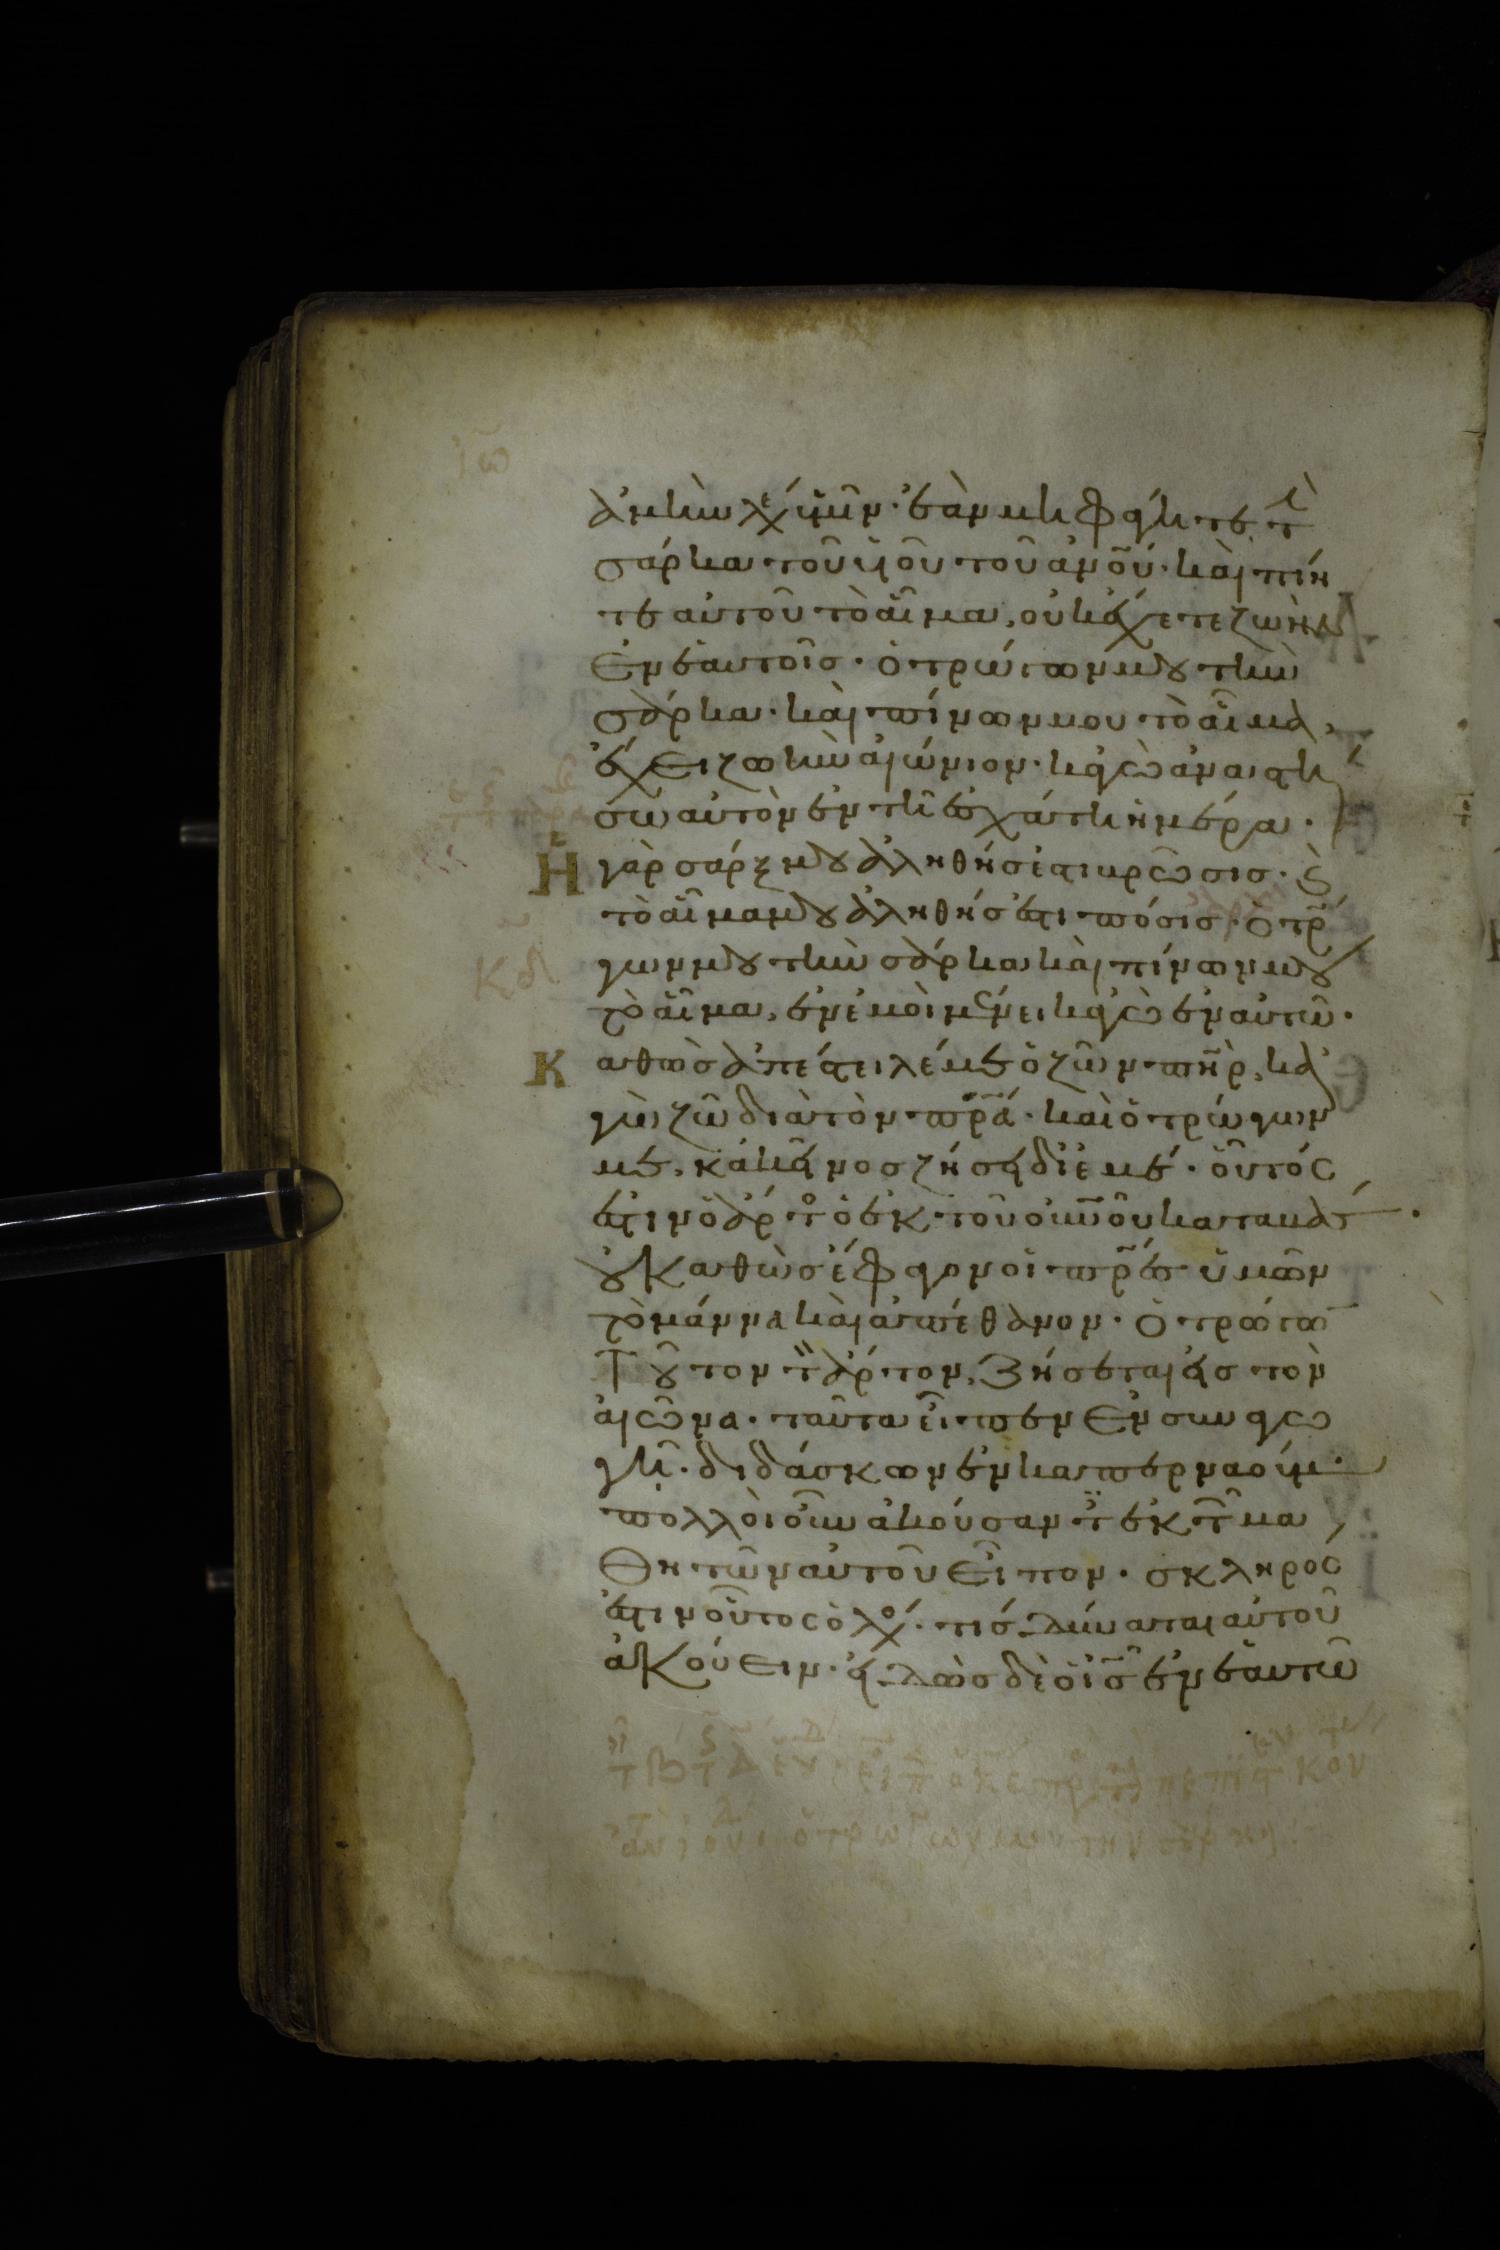 ἀμὴν λέγω ὑμῖν· ἐὰν μὴ φάγητε τ̅
σάρκα τοῦ υἱοῦ τοῦ ἀν̅ου· καὶ πίη
τε αὐτοῦ τὸ αἷμα, οὐκ ἔχετε ζωὴν
ἐν ἑαυτοῖς· ὁ τρώγων μου τὴν
σάρκα· καὶ πίνων μου τὸ αἷμα,
ἔχει ζωὴν αἰώνιον· κἀγὼ ἀναστή
σω αὐτὸν ἐν τῆ ἐσχάτη ἡμέρα·
Ἡ γὰρ σάρξ μου ἀληθής ἐστι βρῶσις· ϗ
τὸ αἷμα μου ἀληθής ἐστι πόσις· ὁ τρώ
γων μου τὴν σάρκα καὶ πίνων μου
τὸ αἷμα, ἐν ἐμοὶ μένει κἀγὼ ἐν αὐτῶ·
Καθὼς ἀπέστειλέ με ὁ ζῶν πη̅ρ, κα
γὼ ζῶ διὰ τὸν πρ̅α· καὶ ὁ τρώγων
με, κἀκεῖνος ζήσει δι' ἐμέ· οὗτός
ἐστιν ὁ ἄρτος ὁ ἐκ τοῦ οὐν̅ου καταβάς·
οὐ καθὼς ἔφαγον οἱ πρ̅ες ὑμῶν
τὸ μάννα καὶ ἀπέθανον· ὁ τρώγω̅
τοῦτον τ̅ ἄρτον, ζήσεται εἰς τὸν
αἰῶνα· ταῦτα εἶπεν ἐν συναγω
γῆ· διδάσκων ἐν καπερναούμ·
πολλοὶ οὖν ἀκούσαντες ἐκ τῶν μα
θητῶν αὐτοῦ εἶπον· σκληρός
ἐστιν οὗτος ὁ λόγος· τίς δύναται αὐτοῦ
ἀκούειν· εἰδὼς δὲ ὁ ι̅ς ἐν ἑαυτῶ